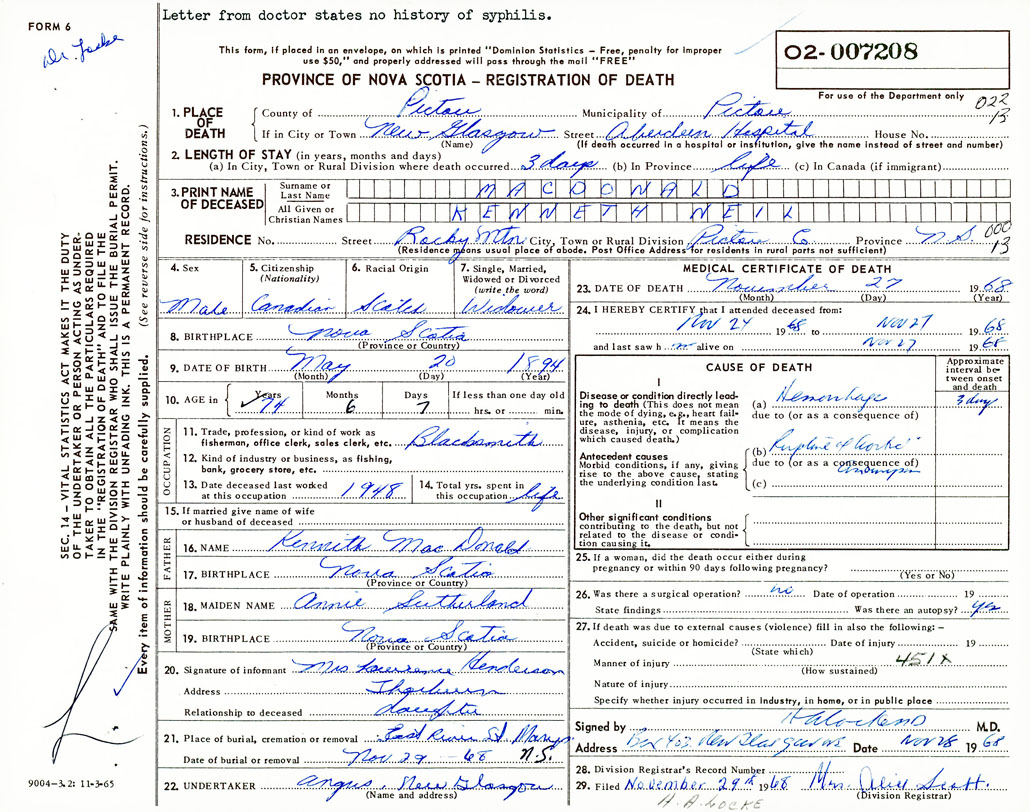 FORM 6
Dr. Locke
Letter from doctor states no history of syphilis.
This form, if placed in an envelope, on which is printed "Dominion Statistics - Free, penalty for improper
use $50," and properly addressed will pass through the mail "FREE"
PROVINCE OF NOVA SCOTIA - REGISTRATION OF DEATH
02-007208
For use of the Department only
022
13
1. PLACE OF DEATH County of Pictou Municipality of Pictou
If in City or Town New Glasgow Street Aberdeen Hospital House No.
(Name) (If death occurred in a hospital or institution, give the name instead of street and number)
2. LENGTH OF STAY (in years, months and days)
(a) In City, Town or Rural Division where death occurred 3 days (b) In Province life (c) In Canada (if immigrant)
3. PRINT NAME OF DECEASED Surname or Last Name MACDONALD
All Given or Christian Names KENNETH NEIL
RESIDENCE No. Street Rocky Mtn City, Town or Rural Division Pictou Co Province N.S.
000
13
(Residence means usual place of abode. Post Office Address for residents in rural parts not sufficient)
4. Sex Male
5. Citizenship (Nationality) Canadian
6. Racial Origin Scotch
7. Single, Married, Widowed or Divorced (write the word) Widower
8. BIRTHPLACE Nova Scotia
(Province or Country)
9. DATE OF BIRTH May 20 1894
(Month) (Day) (Year)
10. AGE in Years 74 Months 6 Days 7 If less than one day old
hrs. or min.
OCCUPATION
11. Trade, profession, or kind of work as
fisherman, office clerk, sales clerk, etc. Blacksmith
12. Kind of industry or business, as fishing,
bank, grocery store, etc.
13. Date deceased last worked
at this occupation 1948
14. Total yrs. spent in
this occupation life
15. If married give name of wife
or husband of deceased
FATHER
16. NAME Kennith Mac Donald
17. BIRTHPLACE Nova Scotia
(Province or Country)
MOTHER
18. MAIDEN NAME Annie Sutherland
19. BIRTHPLACE Nova Scotia
(Province or Country)
20. Signature of informant Mrs Lawrence Henderson
Address Thorburn
Relationship to deceased daughter
21. Place of burial, cremation or removal East River St Marys
N.S.
Date of burial or removal Nov. 29 - 68
22. UNDERTAKER Angus, New Glasgow
(Name and address)
MEDICAL CERTIFICATE OF DEATH
23. DATE OF DEATH November 27 1968
(Month) (Day) (Year)
24. I HEREBY CERTIFY that I attended deceased from:
Nov 24 1968 to Nov 27 1968
and last saw h im alive on Nov 27 1968
CAUSE OF DEATH
Approximate interval between onset and death
I
Disease or condition directly leading to death (This does not mean
the mode of dying, e.g., heart failure, asthenia, etc. It means the
disease, injury, or complication
which caused death.)
(a) Hemorrhage 3 days
due to (or as a consequence of)
Antecedent causes
Morbid conditions, if any, giving
rise to the above cause, stating
the underlying condition last.
(b) Rupture of Aortic
due to (or as a consequence of)
aneurysm
(c)
II
Other significant conditions
contributing to the death, but not
related to the disease or condition causing it.
25. If a woman, did the death occur either during
pregnancy or within 90 days following pregnancy?
(Yes or No)
26. Was there a surgical operation? no Date of operation 19
State findings Was there an autopsy? yes
27. If death was due to external causes (violence) fill in also the following: -
Accident, suicide or homicide? Date of injury 19
(State which)
Manner of injury 451X
(How sustained)
Nature of injury
Specify whether injury occurred in Industry, in home, or in public place
Signed by HA Locke MD M.D.
Address Box 403 New Glasgow NS Date Nov 28 1968
28. Division Registrar's Record Number
29. Filed November 29th 1968 Mrs. Alice Scott.
(Division Registrar)
H. A. LOCKE
SEC. 14 - VITAL STATISTICS ACT MAKES IT THE DUTY
OF THE UNDERTAKER OR PERSON ACTING AS UNDERTAKER TO OBTAIN ALL THE PARTICULARS REQUIRED
IN THE "REGISTRATION OF DEATH" AND TO FILE THE
SAME WITH THE DIVISION REGISTRAR WHO SHALL ISSUE THE BURIAL PERMIT.
WRITE PLAINLY WITH UNFADING INK. THIS IS A PERMANENT RECORD.
Every item of information should be carefully supplied. (See reverse side for instructions.)
9004-3.2: 11-3-65